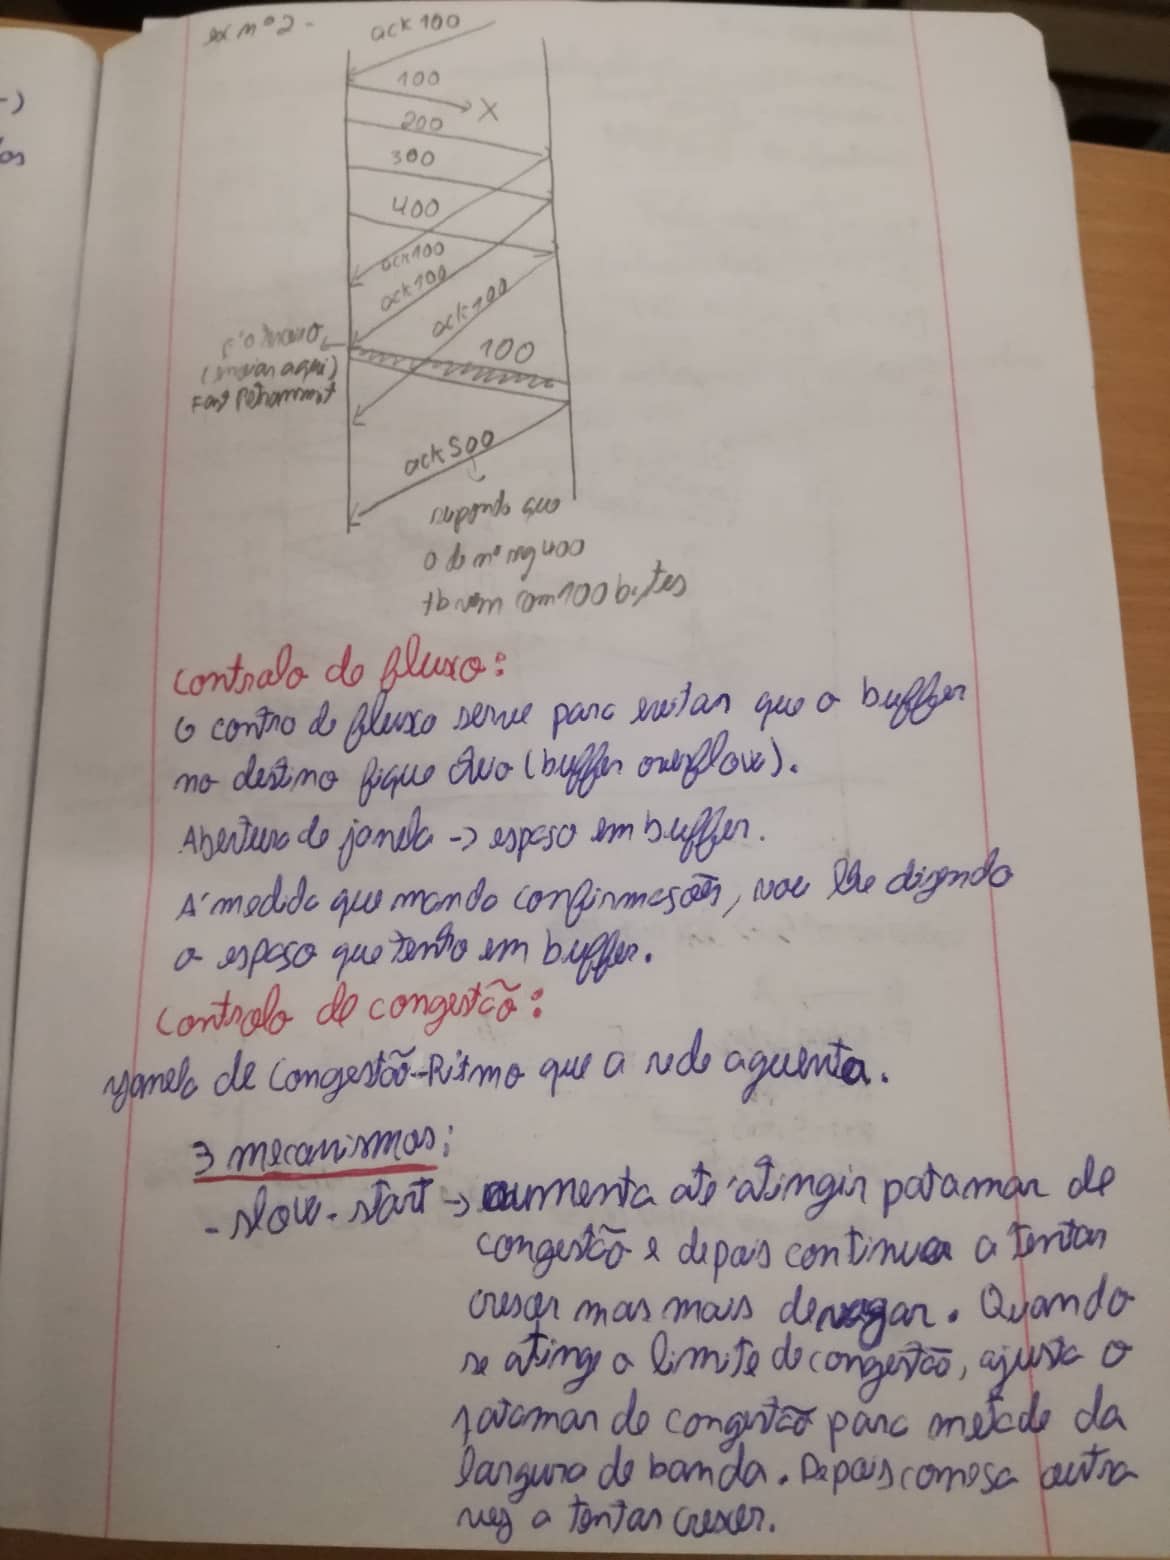 ex nº2-
ack 100
100
X
200
300
400
ack100
ack100
ack100
100
(enviar aqui)
Fast Retransmit
ack500
supondo que
o de nº seg 400
tb vem com 100 bytes
-)
os
Controlo de fluxo:
O contro de fluxo serve para evitar que o buffer
no destino fique (buffer overflow).
Abertura de janela -> espaço em buffer.
À medida que mando confirmações, vou lhe dizendo
o espaço que tenho em buffer.
Controlo de congestão:
Janela de Congestão-Ritmo que a rede aguenta.
3 mecanismos:
- slow-start -> aumenta até atingir patamar de
congestão e depois continua a tentar
crescer mas mais devagar. Quando
se atinge o limite de congestão, ajusta o
patamar de congestão para metade da
largura de banda. Depois começa outra
vez a tentar crescer.